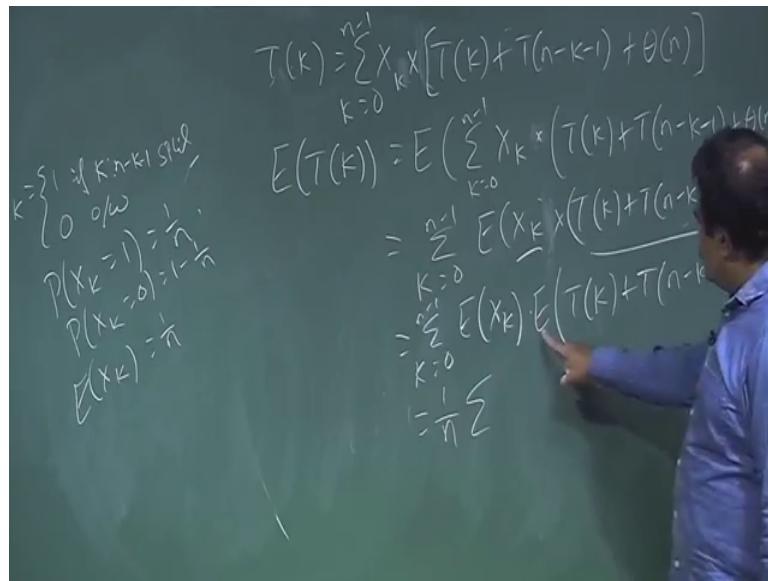 T(k) = Σ_{k=0}^{n-1} X_k × [T(k) + T(n-k-1) + Θ(n)]
E(T(k)) = E(Σ_{k=0}^{n-1} X_k * (T(k) + T(n-k-1) + Θ(n
= Σ_{k=0}^{n-1} E(X_k × (T(k) + T(n-k
= Σ_{k=0}^{n-1} E(X_k) · E(T(k) + T(n-k
= 1/n Σ
k = { 1 if k:n-k-1 split
0 o/w
P(X_k = 1) = 1/n,
P(X_k = 0) = 1 - 1/n
E(X_k) = 1/n